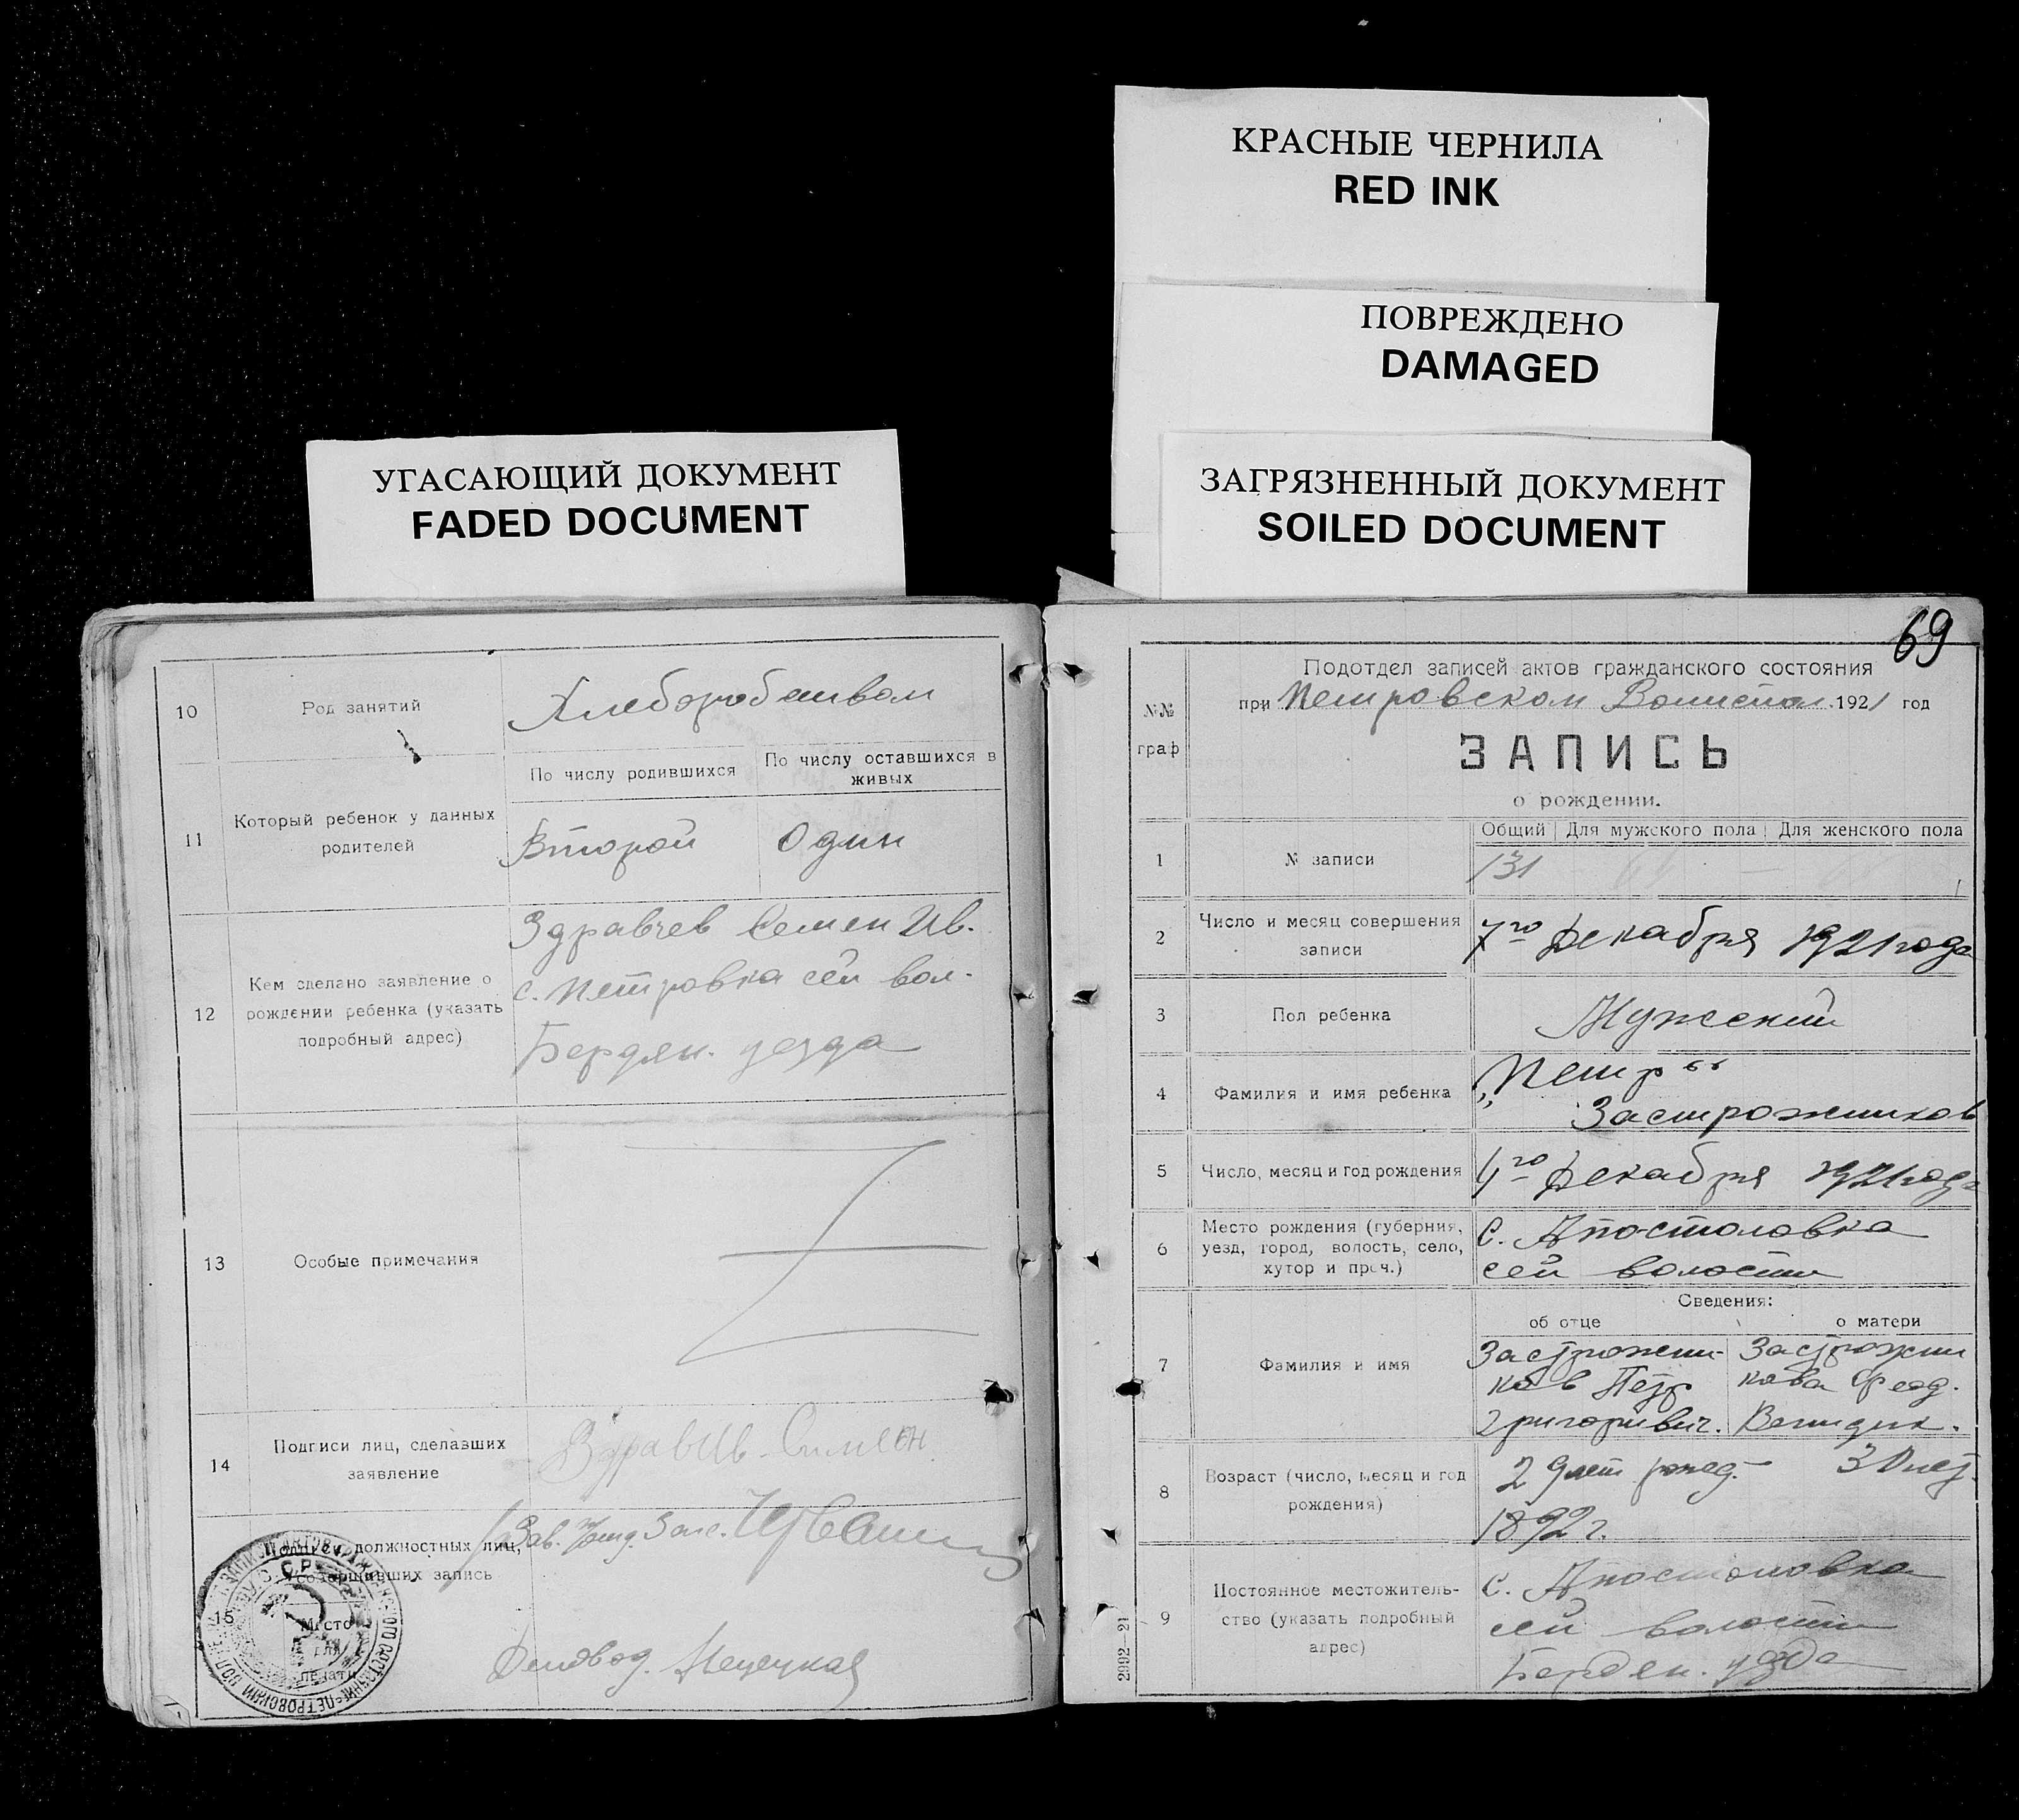 КРАСНЫЕ ЧЕРНИЛА
RED INK
ПОВРЕЖДЕНО
DAMAGED
УГАСАЮЩИЙ ДОКУМЕНТ
FADED DOCUMENT
ЗАГРЯЗНЕННЫЙ ДОКУМЕНТ
SOILED DOCUMENT
10 Род занятий Хлеборобством
По числу родившихся По числу оставшихся в живых
11 Который ребенок у данных родителей Второй Один
12 Кем сделано заявление о рождении ребенка (указать подробный адрес)
Здравчев Семен Ив.
с. Петровка сей вол.
Бердян. уезда
13 Особые примечания
14 Подписи лиц, сделавших заявление
15 должностных лиц, запись
Место для печати
Деловод.
69
Подотдел записей актов гражданского состояния
№№ граф
при Петровском 1921 год
ЗАПИСЬ
о рождении.
Общий Для мужского пола Для женского пола
1 № записи 131
2 Число и месяц совершения записи 7го Декабря 1921 года
3 Пол ребенка Мужский
4 Фамилия и имя ребенка „Петр“
Застрожников
5 Число, месяц и год рождения 4го Декабря 1921 года
6 Место рождения (губерния, уезд, город, волость, село, хутор и проч.)
С. Апостоловка
сей волости
Сведения:
об отце о матери
7 Фамилия и имя
Застрожни- Застрожни
ков Петр кова Феод.
Григориевич.
8 Возраст (число, месяц и год рождения)
29 лет рожд. 30 лет.
1892 г.
9 Постоянное местожительство (указать подробный адрес)
с. Апостоловка
сей волости
Бердян. уезда
2992—21